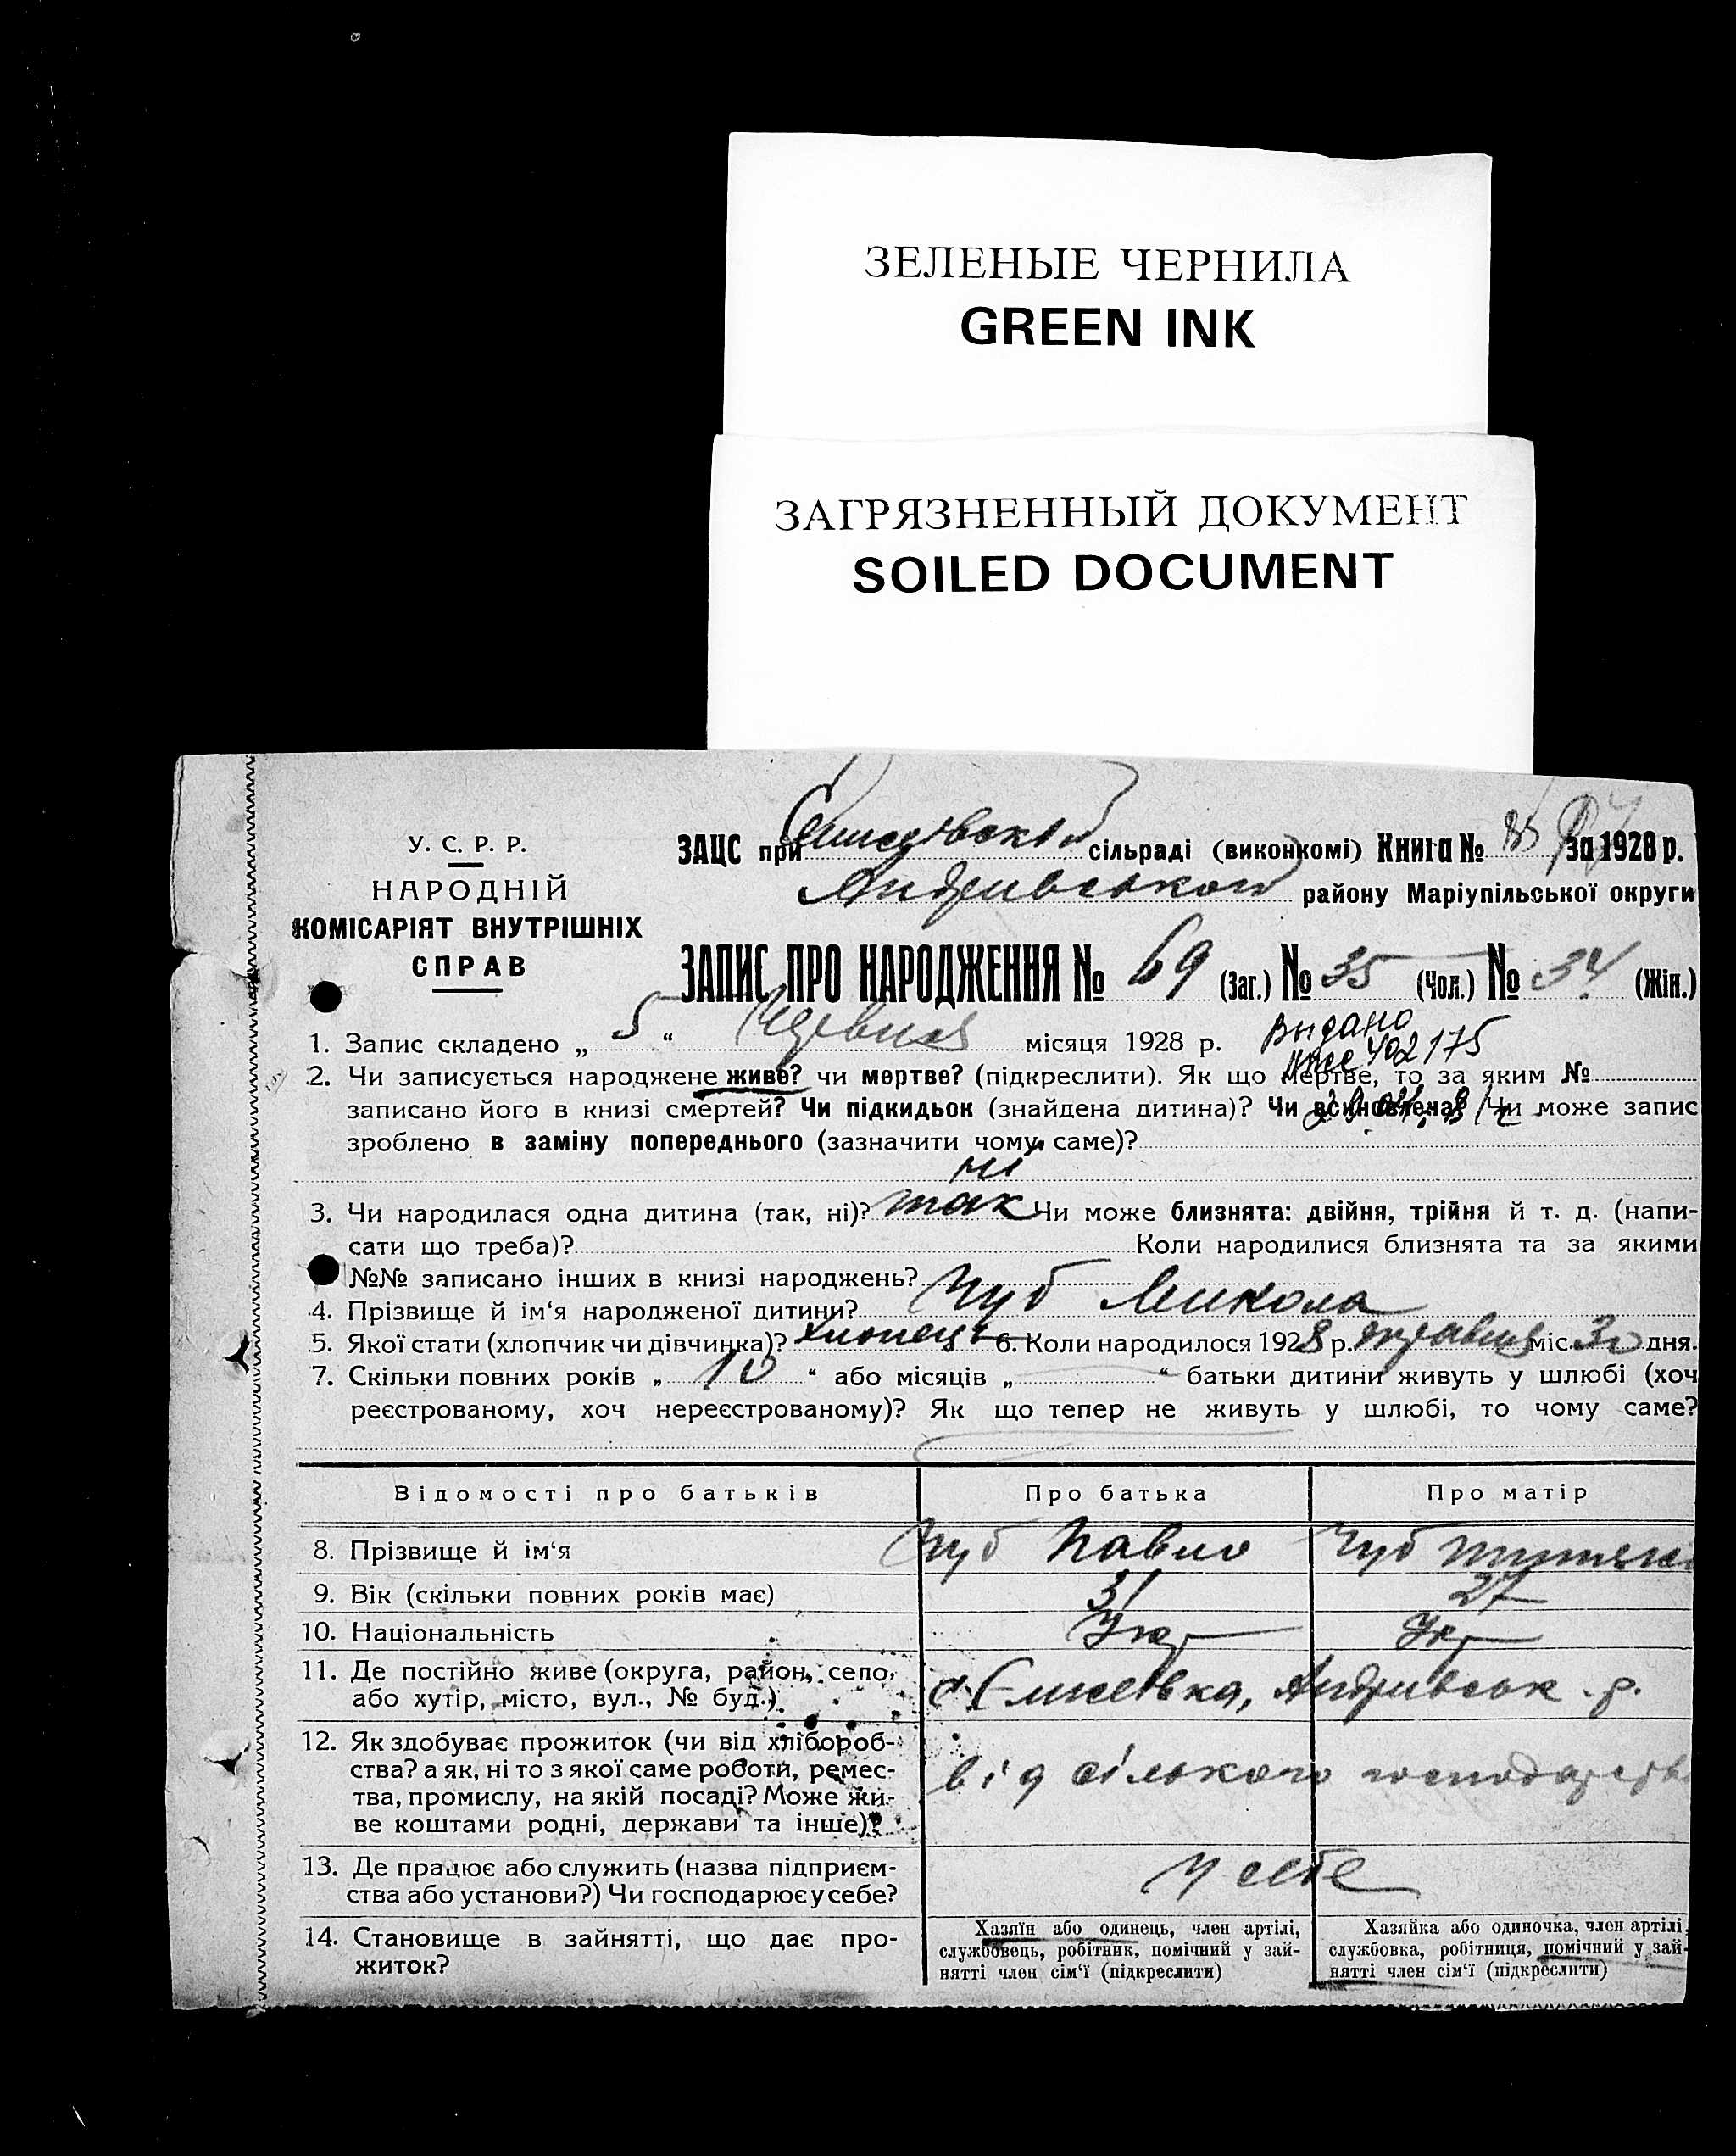 ЗЕЛЕНЫЕ ЧЕРНИЛА
GREEN INK
ЗАГРЯЗНЕННЫЙ ДОКУМЕНТ
SOILED DOCUMENT
У. С. Р. Р.
НАРОДНІЙ
КОМІСАРІЯТ ВНУТРІШНІХ
СПРАВ
ЗАЦС при сільраді (виконкомі) Книга № за 1928 р.
Андривського району Маріупільської округи
ЗАПИС ПРО НАРОДЖЕННЯ № 69 (Заг.) № 35 (Чол.) № 34 (Жін.)
1. Запис складено „ 5 “ Червня місяця 1928 р. Выдано
2. Чи записується народжене живе? чи мертве? (підкреслити). Як що мертве, то за яким №
записано його в книзі смертей? Чи підкидьок (знайдена дитина)? Чи всиновлена? Чи може запис
зроблено в заміну попереднього (зазначити чому саме)?
ні
3. Чи народилася одна дитина (так, ні)? так Чи може близнята: двійня, трійня й т. д. (напи-
сати що треба)? Коли народилися близнята та за якими
№№ записано інших в книзі народжень?
4. Прізвище й ім‘я народженої дитини? Чуб Микола
5. Якої стати (хлопчик чи дівчинка)? хлопець 6. Коли народилося 1928 р. травня міс. 30 дня.
7. Скільки повних років „ 10 “ або місяців „ “ батьки дитини живуть у шлюбі (хоч
реєстрованому, хоч нереєстрованому)? Як що тепер не живуть у шлюбі, то чому саме?
Відомості про батьків Про батька Про матір
8. Прізвище й ім‘я Чуб Павло Чуб
9. Вік (скільки повних років має) 31 27
10. Національність Укр Укр
11. Де постійно живе (округа, район, село,
або хутір, місто, вул., № буд.) с. Єлисеївка, Андривськ. р.
12. Як здобуває прожиток (чи від хлібороб-
ства? а як, ні то з якої саме роботи, ремес-
тва, промислу, на якій посаді? Може жи-
ве коштами родні, держави та інше)? від сілького господарства
13. Де працює або служить (назва підприєм-
ства або установи?) Чи господарює у себе? у себе
14. Становище в зайнятті, що дає про-
житок?
Хазяїн або одинець, член артілі,
службовець, робітник, помічний у зай-
нятті член сім‘ї (підкреслити)
Хазяйка або одиночка, член артілі,
службовка, робітниця, помічний у зай-
нятті член сім‘ї (підкреслити)